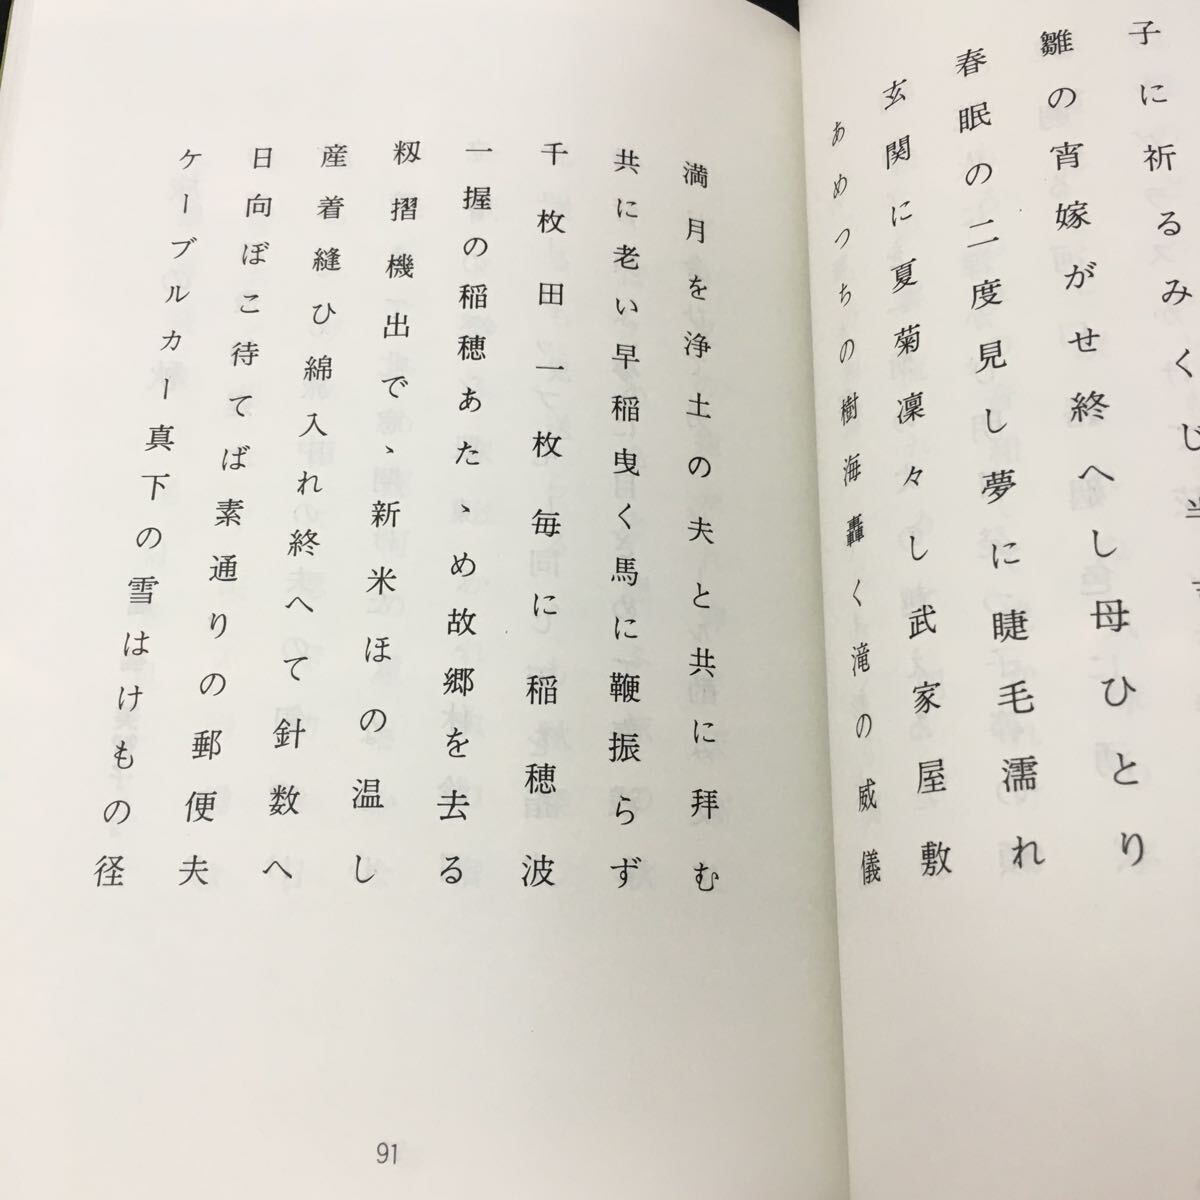 子に祈るみくじ
雛の宵嫁がせ終へし母ひとり
春眠の二度見し夢に睫毛濡れ
玄関に夏菊凜々し武家屋敷
あめつちの樹海轟く滝の威儀
満月を浄土の夫と共に拝む
共に老い早稲曳く馬に鞭振らず
千枚田一枚毎に稲穂波
一握の稲穂あたゝめ故郷を去る
籾摺機出でゝ新米ほの温し
産着縫ひ綿入れ終へて針数へ
日向ぼこ待てば素通りの郵便夫
ケーブルカー真下の雪はけもの径
91